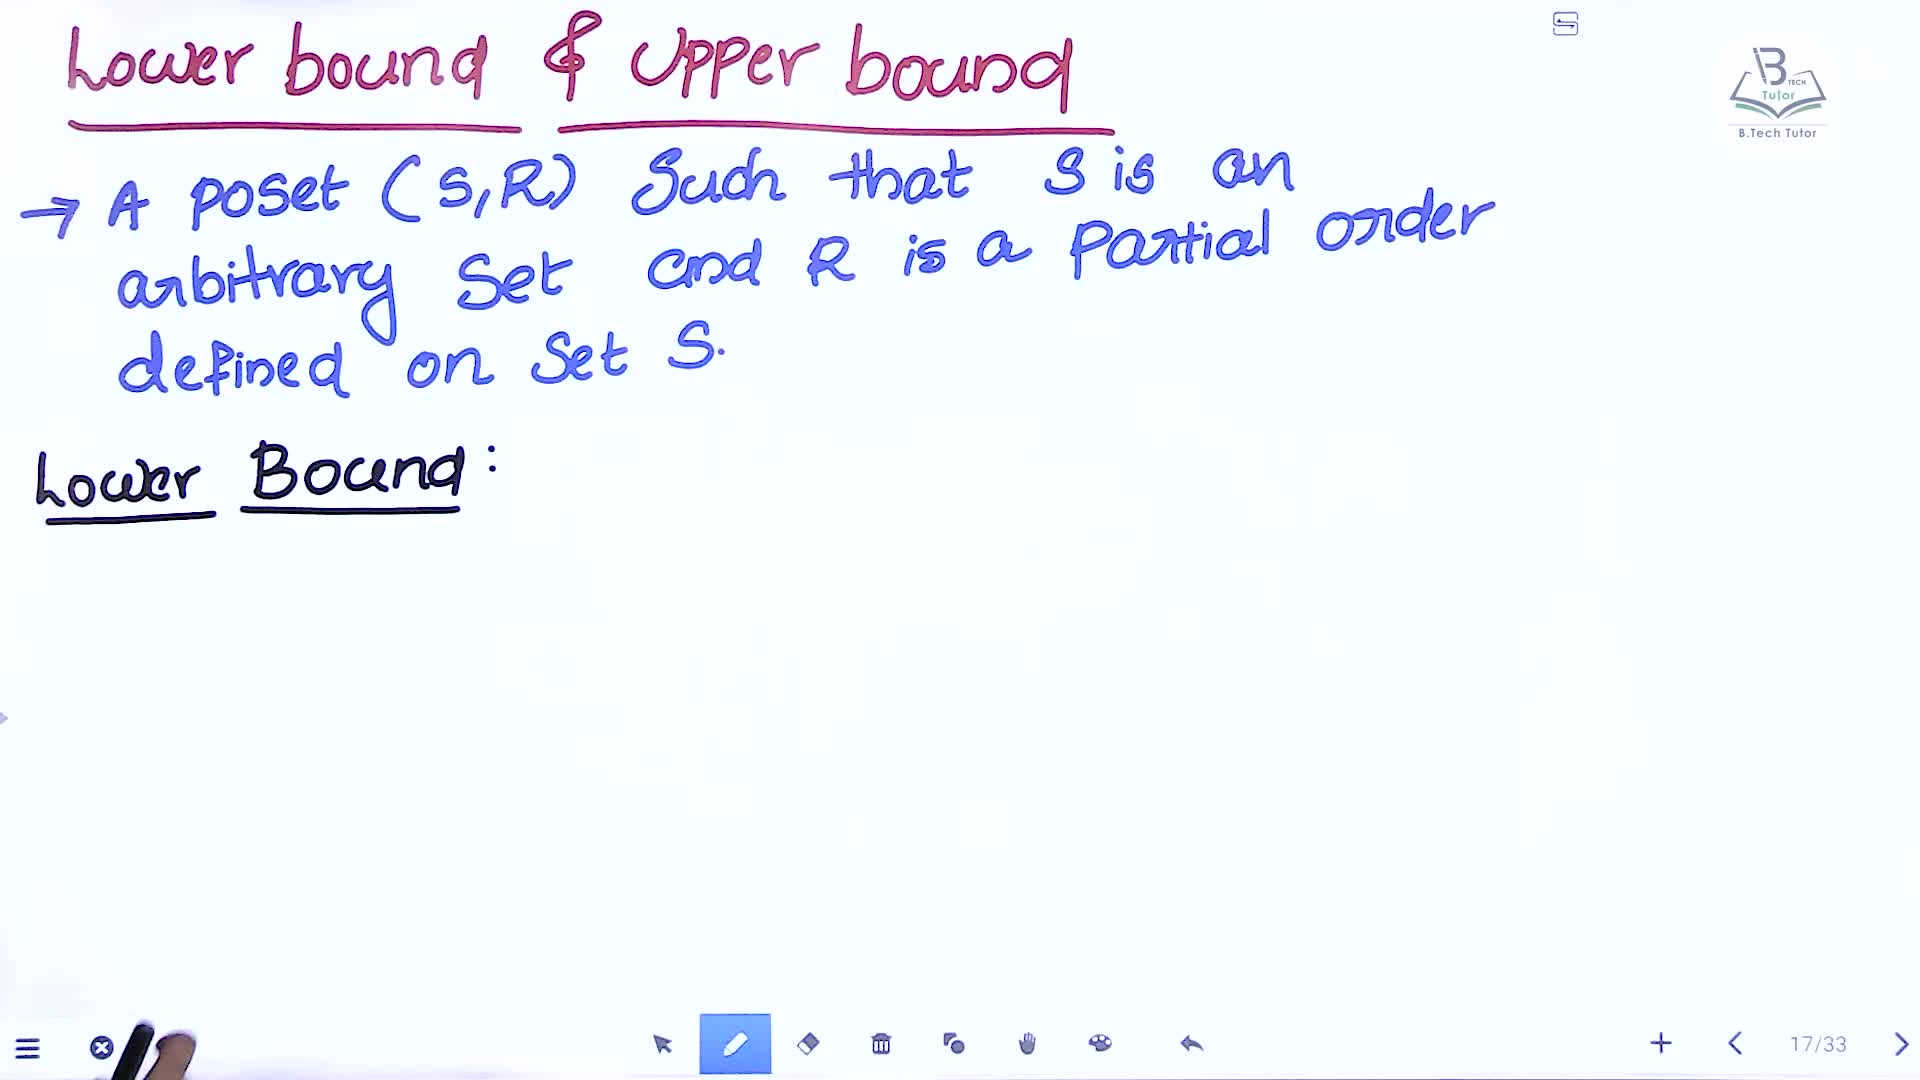 Lower bound & Upper bound
→ A poset (S,R) Such that S is an
arbitrary Set and R is a Partial order
defined on Set S.
Lower Bound:
B TECH
Tutor
B.Tech Tutor
17/33